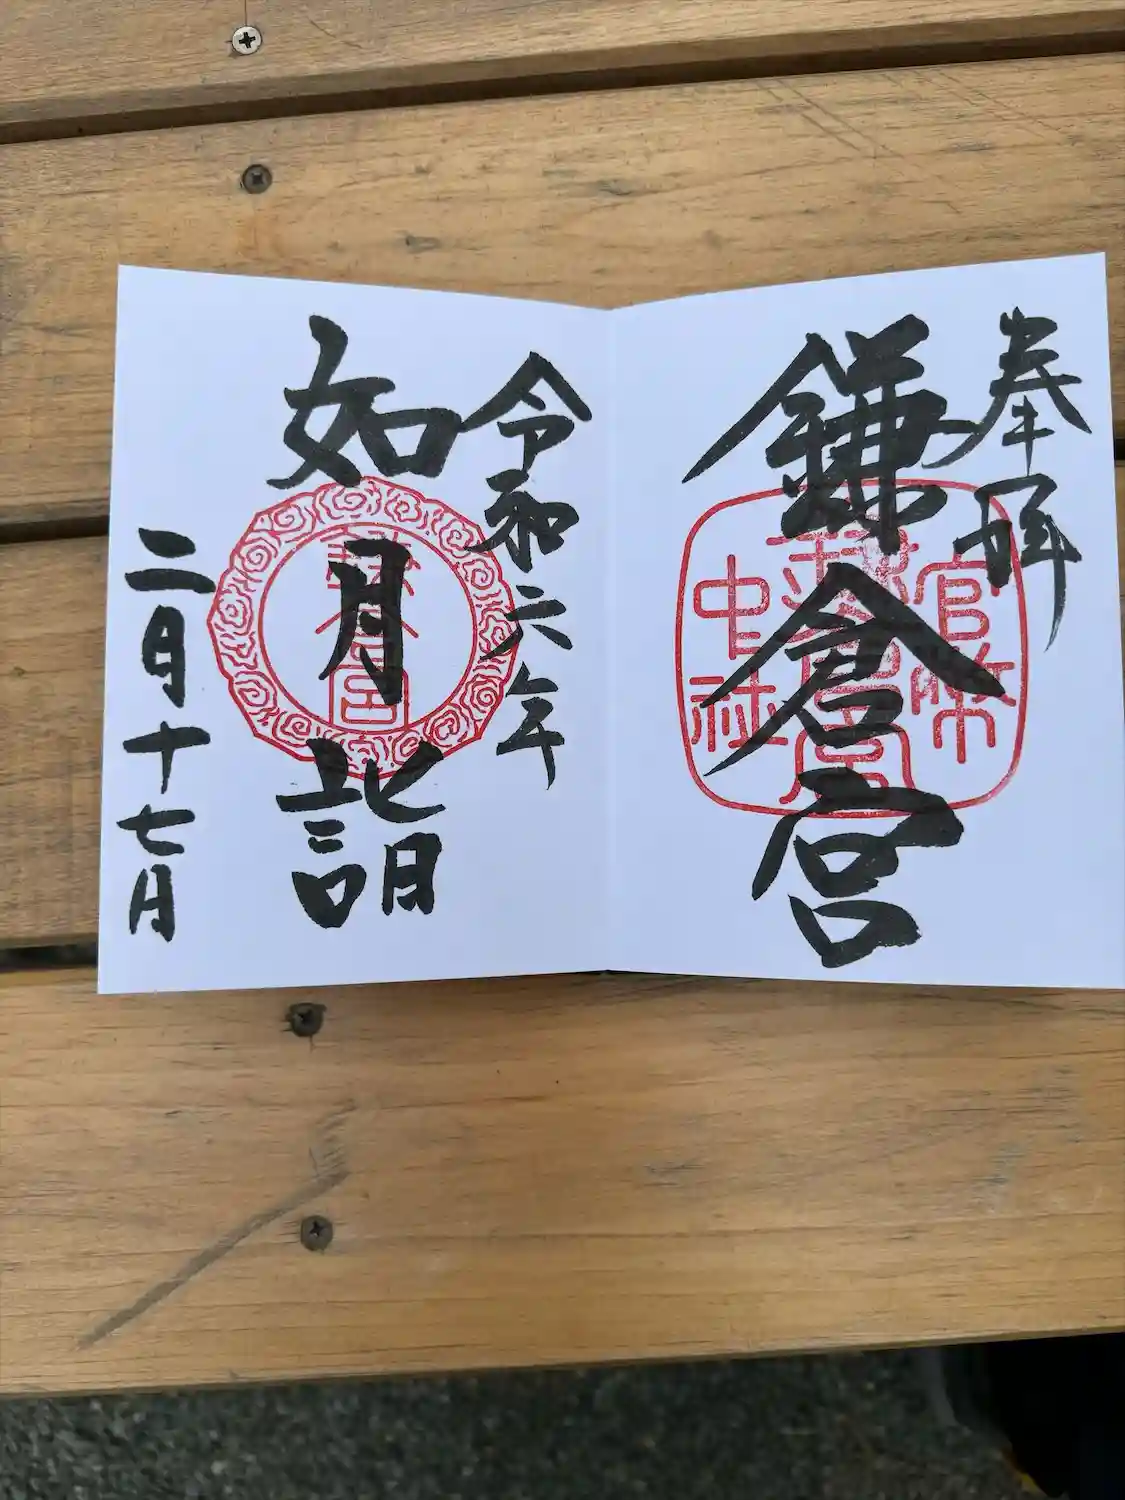 奉拝
鎌倉宮
官幣
鎌倉宮
中社
令和六年
如月詣
鎌倉宮
二月十七日